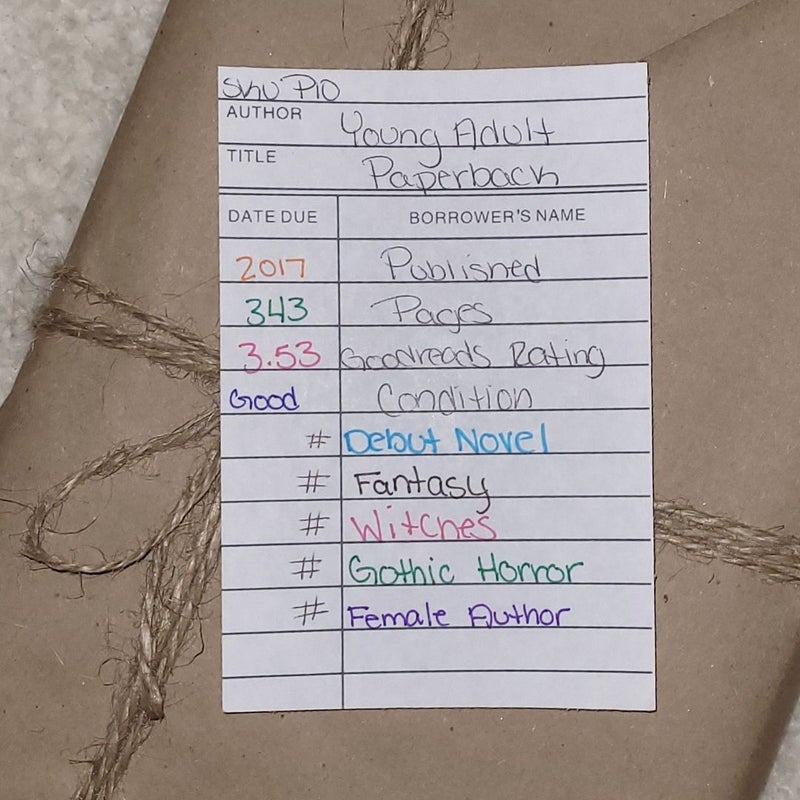 SKU P10
AUTHOR Young Adult
TITLE Paperback
DATE DUE BORROWER'S NAME
2017 Published
343 Pages
3.53 Goodreads Rating
Good Condition
# Debut Novel
# Fantasy
# Witches
# Gothic Horror
# Female Author